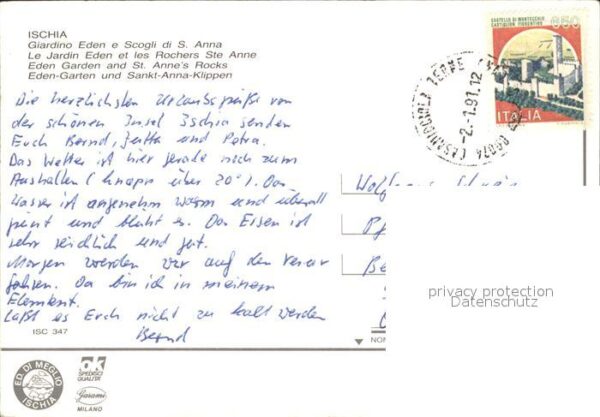 ISCHIA
Giardino Eden e Scogli di S. Anna
Le Jardin Eden et les Rochers Ste Anne
Eden Garden and St. Anne's Rocks
Eden-Garten und Sankt-Anna-Klippen
CASTELLO DI MONTECCHIO
CASTIGLION FIORENTINO
650
ITALIA
80074 CASAMICCIOLA TERME
-2.-1.91.12
Die herzlichsten Urlaubsgrüße von
der schönen Insel Ischia senden
Euch Bernd, Jutta und Petra.
Das Wetter ist hier gerade noch zum
Aushalten (knapp über 20°). Das
Wasser ist angenehm warm und überall
grünt und blüht es. Das Essen ist
sehr reichlich und gut.
Morgen werden wir auf den Vesuv
fahren. Da bin ich in meinem
Element.
Laßt es Euch nicht zu kalt werden
Bernd
privacy protection
Datenschutz
ISC 347
ED. DI MEGLIO
ISCHIA
ok
SPEDISCI
QUALITA'
Garami
MILANO